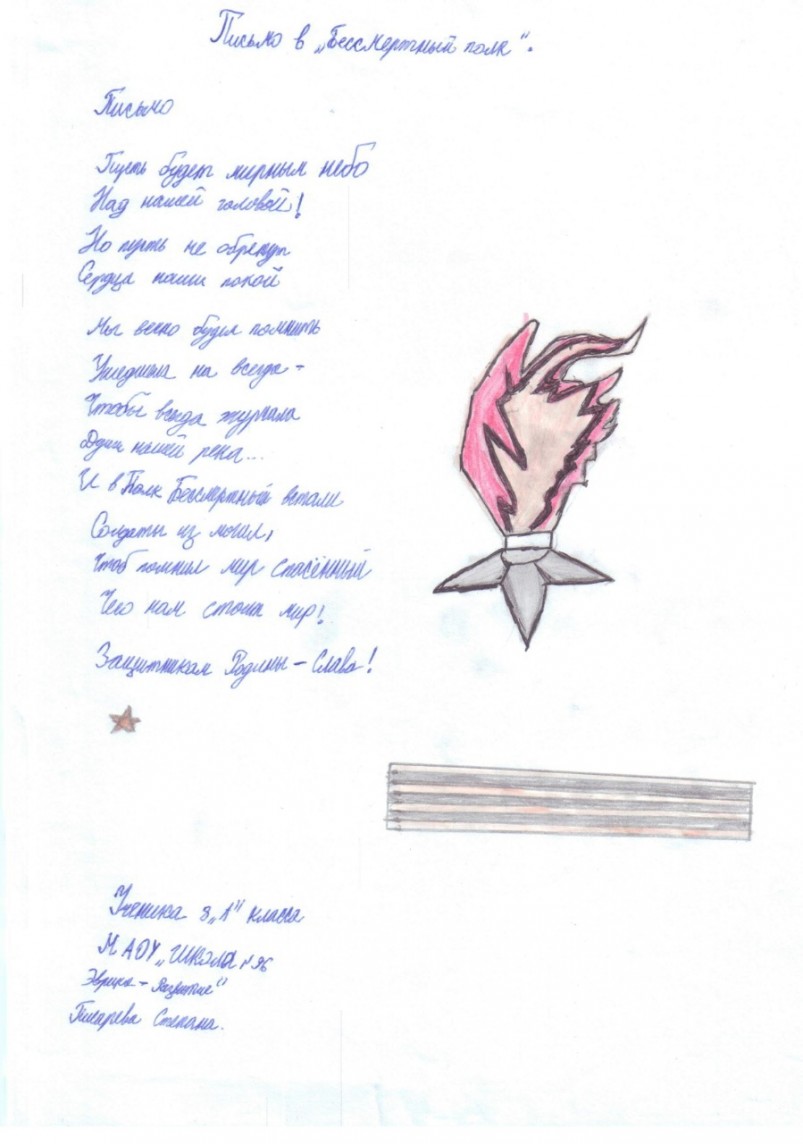 Письмо в „Бессмертный полк".
Письмо
Пусть будет мирным небо
Над нашей головой!
Но пусть не обретут
Сердца наши покой
Мы веко будем помнить
Ушедшим на всегда -
Чтобы всегда журчала
Души нашей река...
И в Полк Бессмертный встали
Солдаты из могил,
Чтоб помнил мир спасённый
Чего нам стоил мир!
Защитникам Родины - Слава!
Ученика 3 „А" класса
МАОУ „Школа №96
Эврика - Развитие"
Степана.